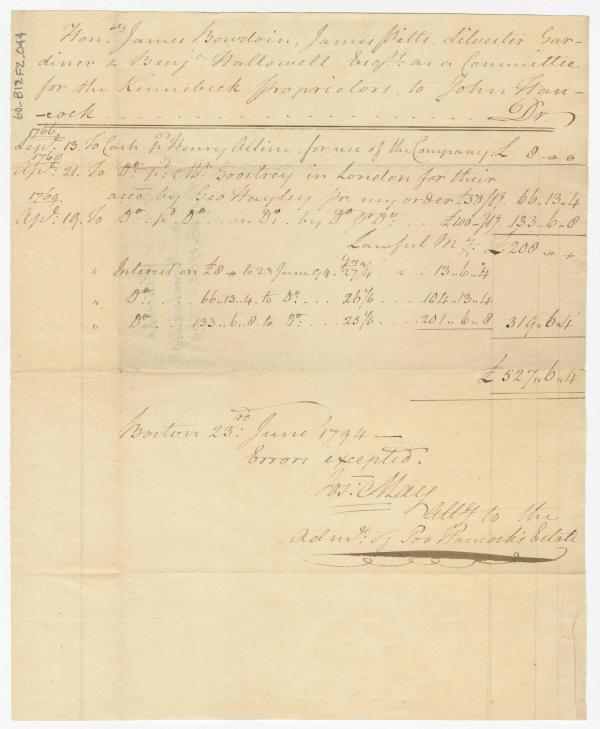 60-B12F2.044
Hon.ble James Bowdoin, James Pitts, Silvester Gar-
diner & Benj.a Hallowell Esq.rs as a Committee
for the Kennebeck Proprietors, to John Han-
-cock . . . . . . . . . . . . . . . Dr
1766
Sept. 13. To Cash p.d Henry Alline for use of the Company £ 8 " 0 " 0
1768
Apr. 21. To D.o p.d M.r Goostrey in London for their
acco. by Geo Hayley pr. my order £50 66.13.4
1769
Apr. 19. To D.o p.d D.o in D.o by D.o pr D.o £100 133..6..8
Lawful M.y £ 208 " "
" Interest on £8 " to 23 June 94 . 27 9/12 y. " 13..6..4
" D.o . . 66.13..4 to D.o . . . 26 . . . 104..13..4
" D.o . . 133..6..8 to D.o . . . 25 . . . 201..6..8 319..6..4
£ 527..6..4
Boston 23.rd June 1794 —
Errors excepted.
Jos: May
Att.y to the
Adm.r of Gov Hancock's Estate